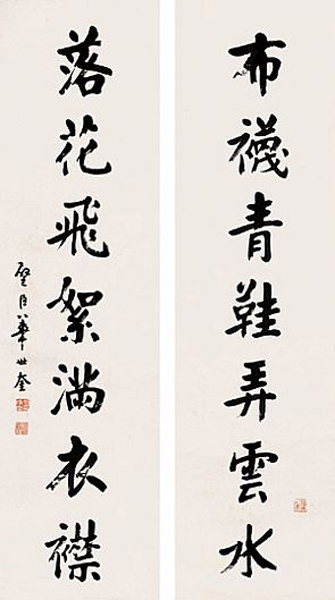 布襪青鞋弄雲水
落花飛絮滿衣襟
璧臣華世奎